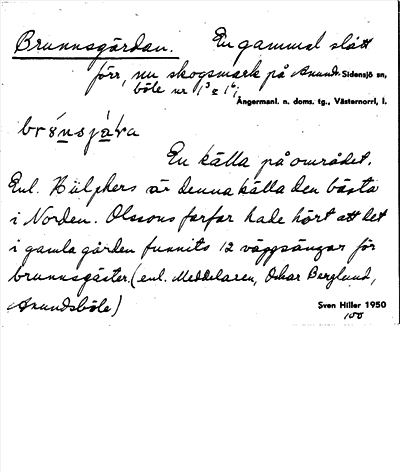 Brunnsgärdan. En gammal slått
förr, nu skogsmark på Anund- Sidensjö sn,
böle nr 1³ o 1⁶, Ångermanl. n. doms. tg., Västernorrl. l.
En källa på området.
Enl. Hülphers är denna källa den bästa
i Norden. Olssons farfar hade hört att det
i gamla gården funnits 12 väggsängar för
brunnsgäster. (enl. Meddelaren, Oskar Berglund,
Anundsböle)
Sven Hiller 1950
100